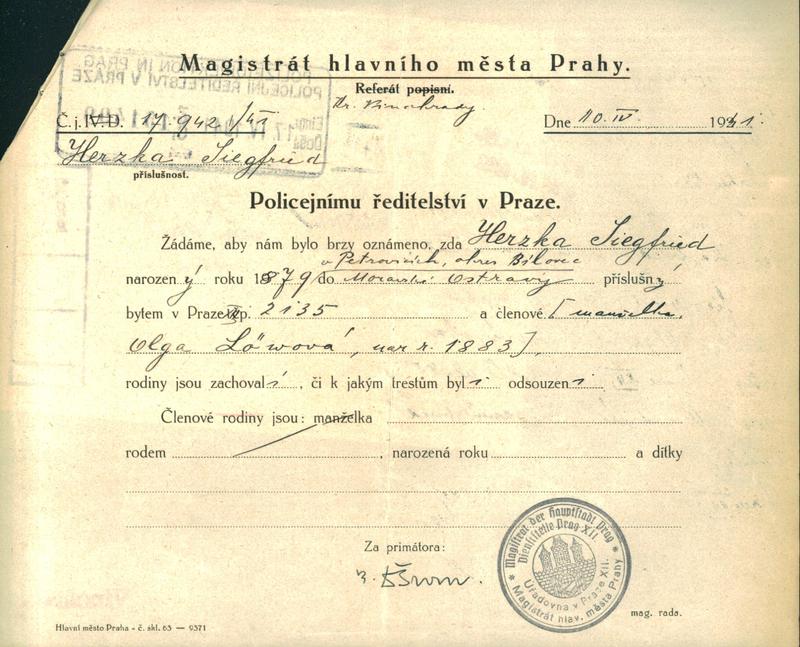 Magistrát hlavního města Prahy.
Referát popisní.
Kr. Vinohrady.
Č. j. IV. D. 17.942/41 Dne 10. IV. 1941.
Herzka Siegfried
příslušnost.
Policejnímu ředitelství v Praze.
Žádáme, aby nám bylo brzy oznámeno, zda Herzka Siegfried
v Petrovicích, okres Bílovec
narozený roku 1879 do Moravské Ostravy příslušný
bytem v Praze XII čp. 2135 a členové [manželka,
Olga Löwová, nar. r. 1883],
rodiny jsou zachovalí, či k jakým trestům byli odsouzeni.
Členové rodiny jsou: manželka
rodem , narozená roku a dítky
Za primátora:
mag. rada.
Magistrat der Hauptstadt Prag
Dienststelle Prag XII.
Úřadovna v Praze XII.
Magistrát hlav. města Prahy
Hlavní město Praha - č. skl. 63 — 9371
POLIZEIDIREKTION IN PRAG
POLICEJNÍ ŘEDITELSTVÍ V PRAZE